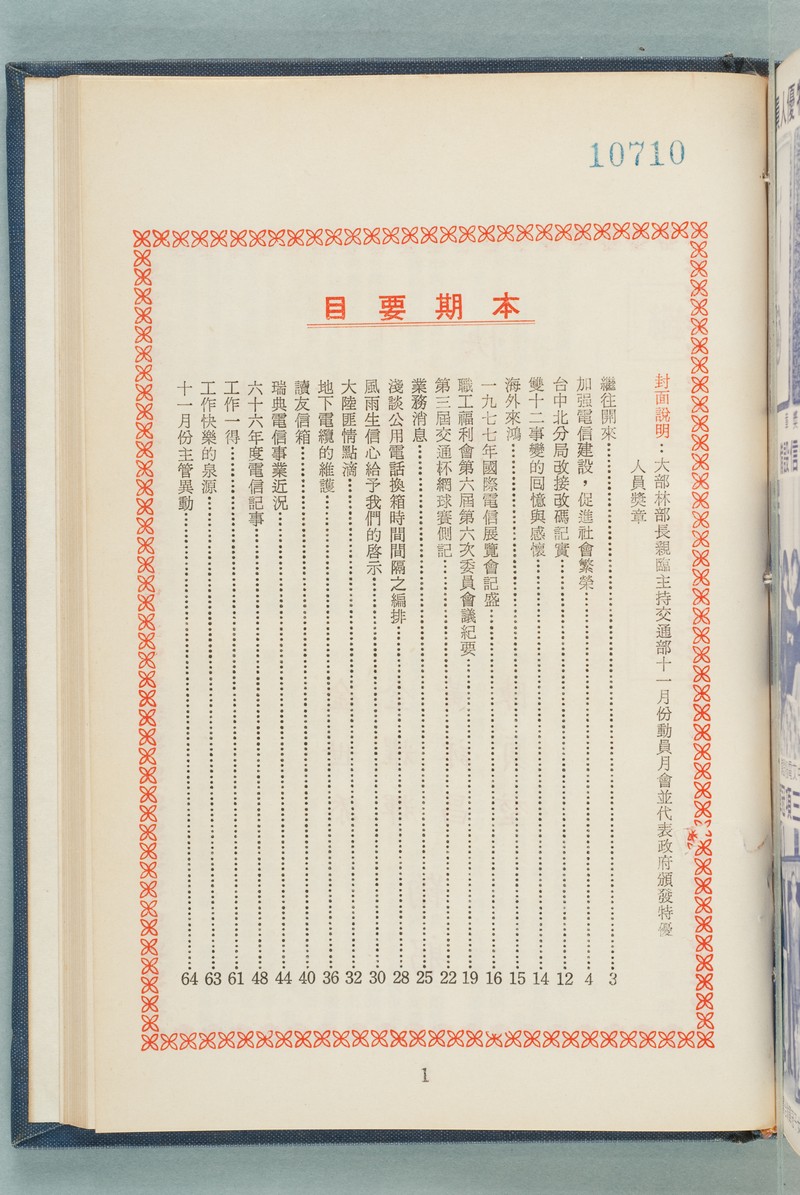 10710
本期要目
封面說明：大部林部長親臨主持交通部十一月份動員月會並代表政府頒發特優
人員獎章
繼往開來 3
加强電信建設，促進社會繁榮 4
台中北分局改接改碼記實 12
雙十二事變的回憶與感懷 14
海外來鴻 15
一九七七年國際電信展覽會記盛 16
職工福利會第六屆第六次委員會議紀要 19
第三屆交通杯網球賽側記 22
業務消息 25
淺談公用電話換箱時間間隔之編排 28
風雨生信心給予我們的啓示 30
大陸匪情點滴 32
地下電纜的維護 36
讀友信箱 40
瑞典電信事業近況 44
六十六年度電信記事 48
工作一得 61
工作快樂的泉源 63
十一月份主管異動 64
1